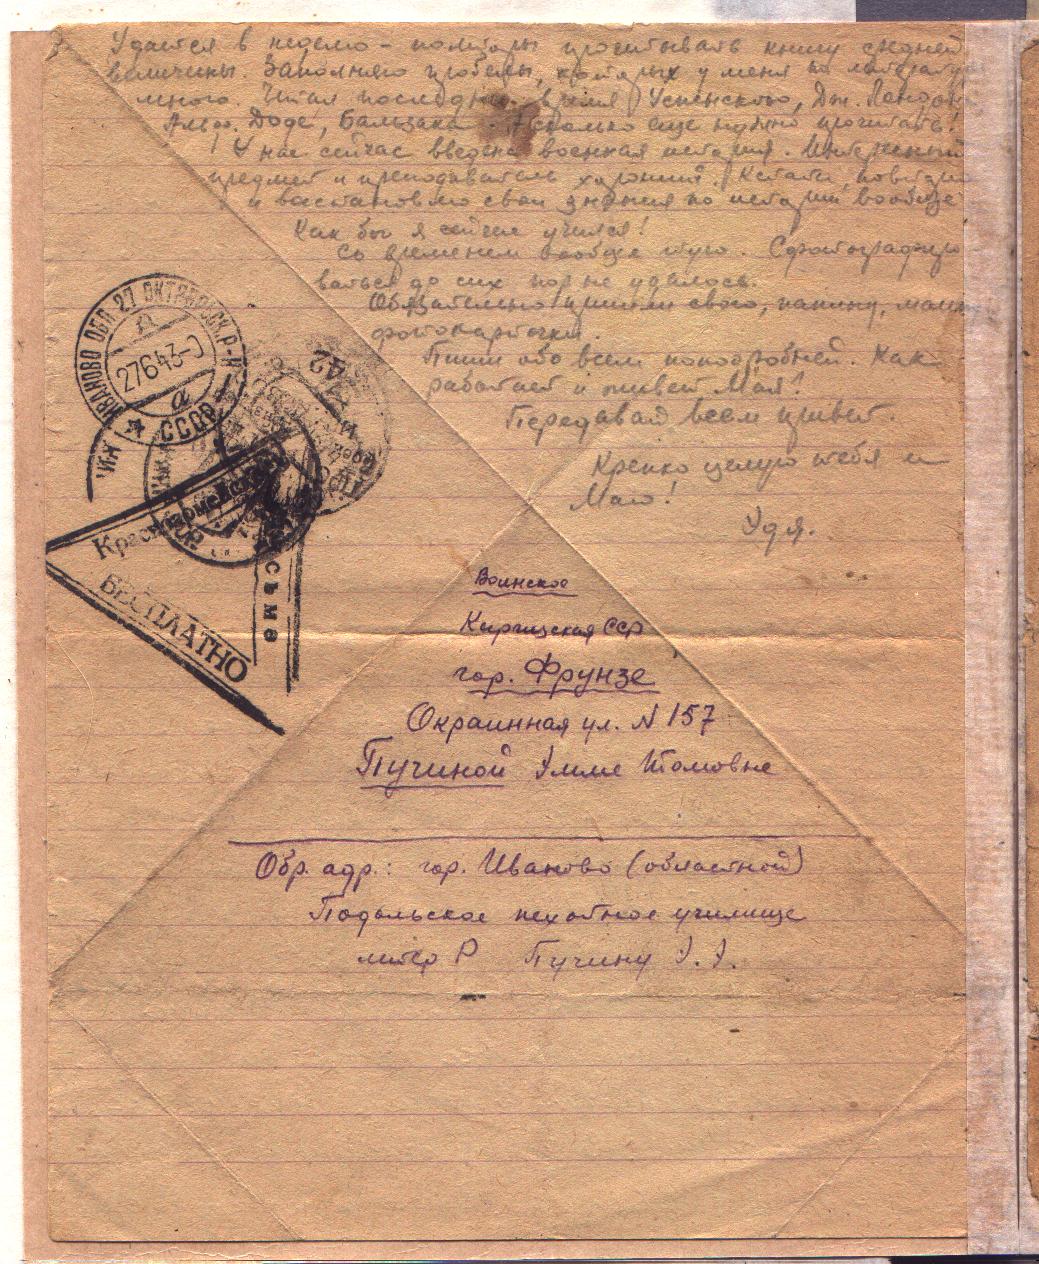 Удается в неделю - полторы прочитывать книгу средней
величины. Заполняю пробелы, которых у меня по литерату
много. Читал последнее время Успенского, Дж. Лондон
Альф. Доде, Бальзака. А сколько еще нужно прочитать!
У нас сейчас введена военная история. Интересный
предмет и преподаватель хороший. Кстати,
и восстановлю свои знания по истории вообще
Как бы я сейчас учился!
Со временем вообще туго. Сфотографиро
ваться до сих пор не удалось.
Обязательно пришли свою, папину, мами
фотокарточки.
Пиши обо всем поподробней. Как
работает и живет Мая?
Передавай всем привет.
Крепко целую тебя и
Маю!
Удя.
ИВАНОВО ОБЛ. 27 ОКТЯБРЬСК. Р-Н
27643-0
а
СССР
42
Красноармейское
письмо
БЕСПЛАТНО
Воинское
Киргизская ССР
гор. Фрунзе
Окраинная ул. N 157
Пучиной Эмме Томовне
Обр. адр.: гор. Иваново (областной)
Подольское пехотное училище
литер Р Пучину Э. Э.